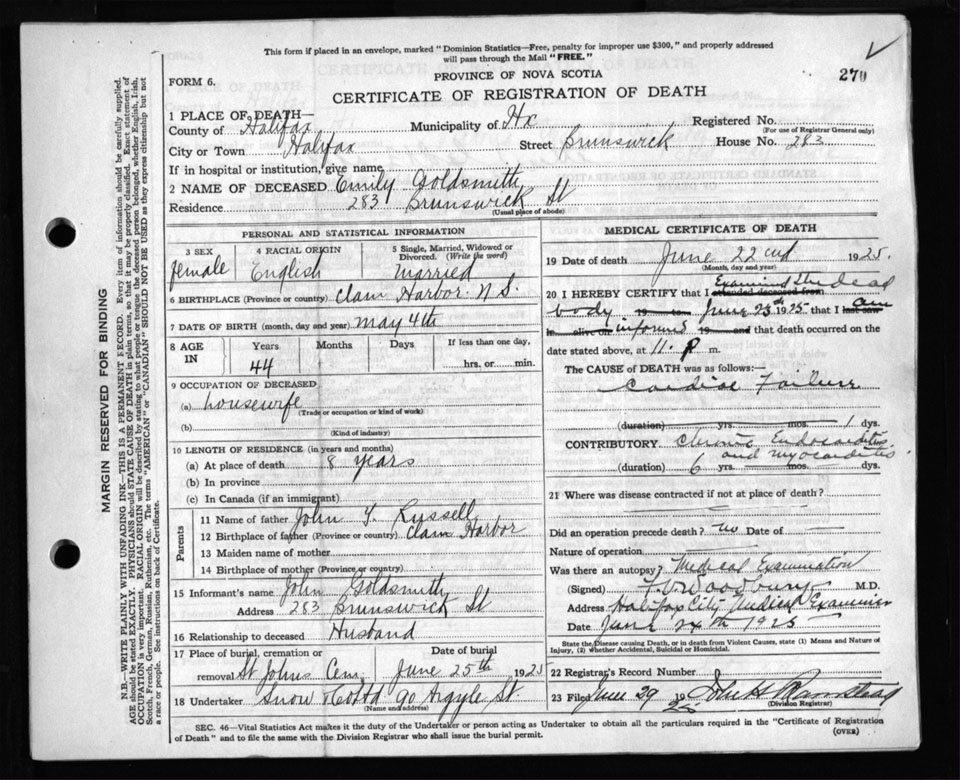 This form if placed in an envelope, marked "Dominion Statistics—Free, penalty for improper use $300," and properly addressed
will pass through the Mail "FREE."
PROVINCE OF NOVA SCOTIA
FORM 6.
270
CERTIFICATE OF REGISTRATION OF DEATH
1 PLACE OF DEATH—
County of Halifax Municipality of Hx Registered No.
(For use of Registrar General only)
City or Town Halifax Street Brunswick House No. 283
If in hospital or institution, give name
2 NAME OF DECEASED Emily Goldsmith
Residence 283 Brunswick St
(Usual place of abode)
PERSONAL AND STATISTICAL INFORMATION
3 SEX 4 RACIAL ORIGIN 5 Single, Married, Widowed or Divorced. (Write the word)
female English married
6 BIRTHPLACE (Province or country) Clam Harbor N S.
7 DATE OF BIRTH (month, day and year) may 4th
8 AGE IN Years Months Days If less than one day,
44 hrs. or min.
9 OCCUPATION OF DECEASED
(a) housewife
(Trade or occupation or kind of work)
(b)
(Kind of industry)
10 LENGTH OF RESIDENCE (in years and months)
(a) At place of death 8 years
(b) In province
(c) In Canada (if an immigrant)
Parents
11 Name of father John Russell
12 Birthplace of father (Province or country) Clam Harbor
13 Maiden name of mother
14 Birthplace of mother (Province or country)
15 Informant's name John Goldsmith
Address 283 Brunswick St
16 Relationship to deceased Husband
17 Place of burial, cremation or removal Date of burial
St Johns Cem June 25th 1925
18 Undertaker Snow 90 Argyle St.
(Name and address)
MEDICAL CERTIFICATE OF DEATH
19 Date of death June 22nd 1925.
(Month, day and year)
20 I HEREBY CERTIFY that I attended deceased from Examined the dead
body 19 to June 23rd 1925 that I last saw am
h alive on informed 19 and that death occurred on the
date stated above, at 11. P m.
The CAUSE OF DEATH was as follows:—
Cardiac Failure
(duration) yrs. mos. 1 dys.
CONTRIBUTORY Chronic Endocarditis
and myocarditis
(duration) 6 yrs. mos. dys.
21 Where was disease contracted if not at place of death?
Did an operation precede death? no Date of —
Nature of operation
Was there an autopsy? Medical Examination
(Signed) Woodbury M.D.
Address Halifax City Medical Examiner
Date June 24th 1925
State the Disease causing Death, or in death from Violent Causes, state (1) Means and Nature of
Injury, (2) whether Accidental, Suicidal or Homicidal.
22 Registrar's Record Number
23 Filed June 29 19 25 John H
(Division Registrar)
SEC. 46—Vital Statistics Act makes it the duty of the Undertaker or person acting as Undertaker to obtain all the particulars required in the "Certificate of Registration
of Death" and to file the same with the Division Registrar who shall issue the burial permit.
(OVER)
MARGIN RESERVED FOR BINDING
N.B.—WRITE PLAINLY WITH UNFADING INK—THIS IS A PERMANENT RECORD. Every item of information should be carefully supplied.
AGE should be stated EXACTLY. PHYSICIANS should STATE CAUSE OF DEATH in plain terms, so that it may be properly classified. Exact statement of
OCCUPATION is very important. RACIAL ORIGIN will be described by stating to what people or tongue the deceased person belonged, whether English, Irish,
Scotch, French, German, Russian, Ruthenian, etc. The terms "AMERICAN" or "CANADIAN" SHOULD NOT BE USED as they express citizenship but not
a race or people. See instructions on back of Certificate.